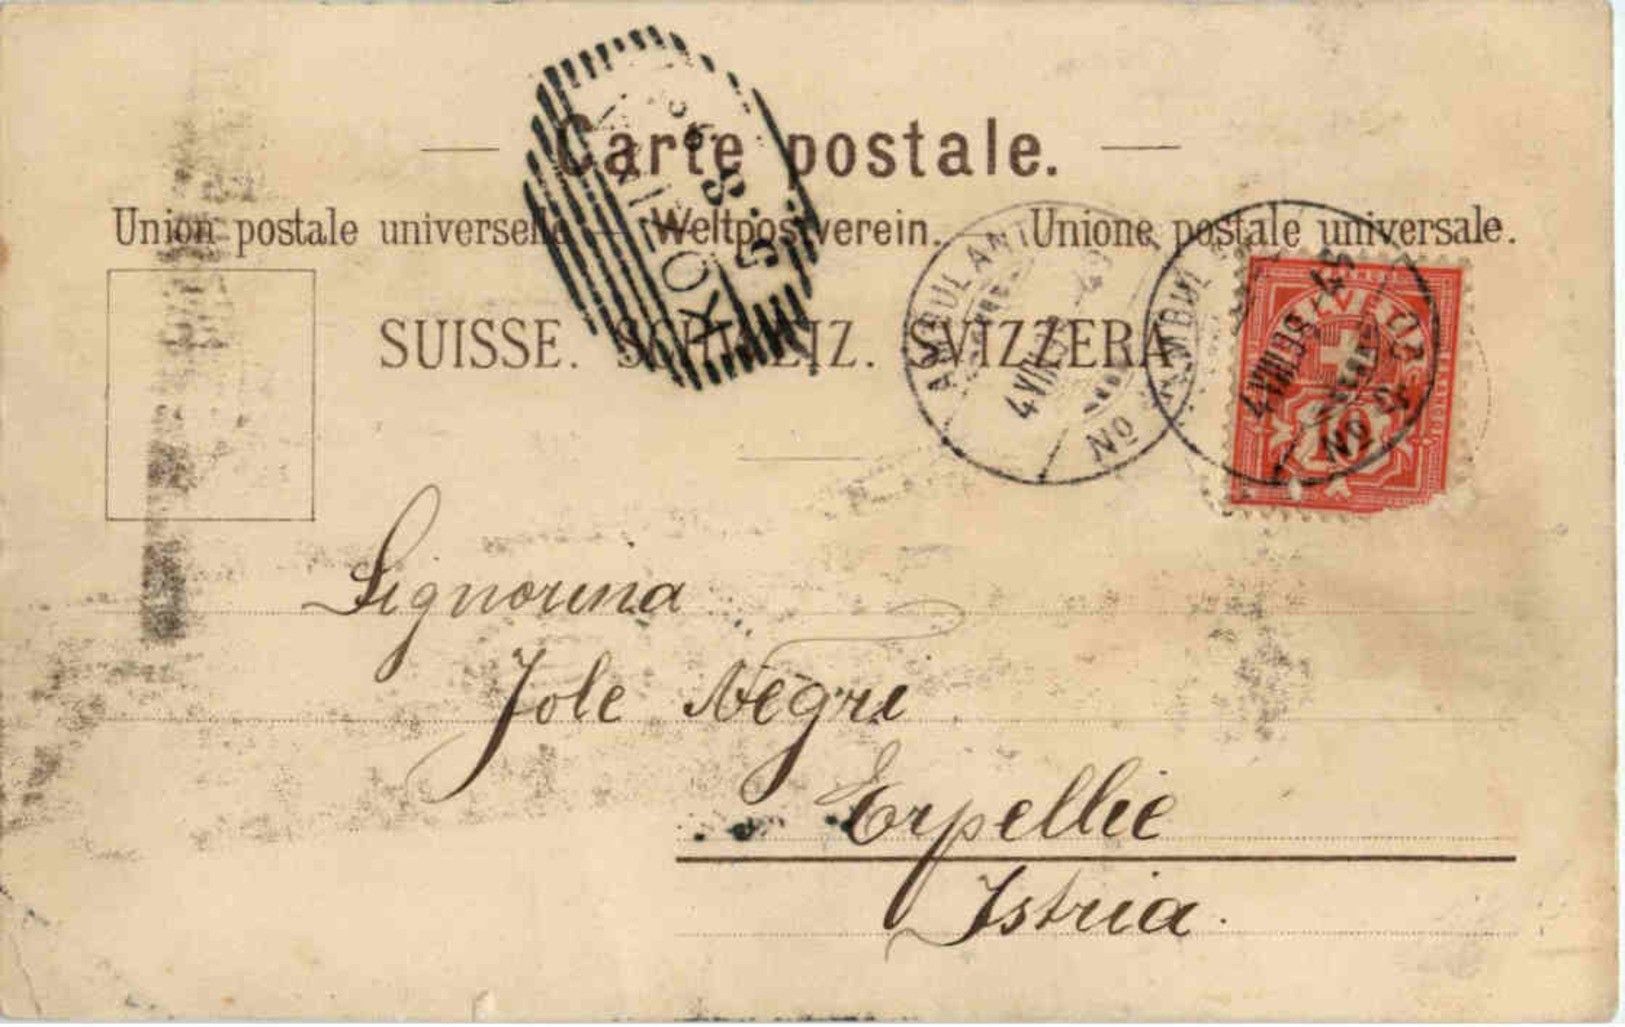 Carte postale.
Union postale universelle — Weltpostverein. — Unione postale universale.
SUISSE. SCHWEIZ. SVIZZERA
AMBULANT
4 VIII
No
AMBUL
4 VIII 98
No
HELVETIA
10
Signorina
Jole Negri
Erpellie
Istria.